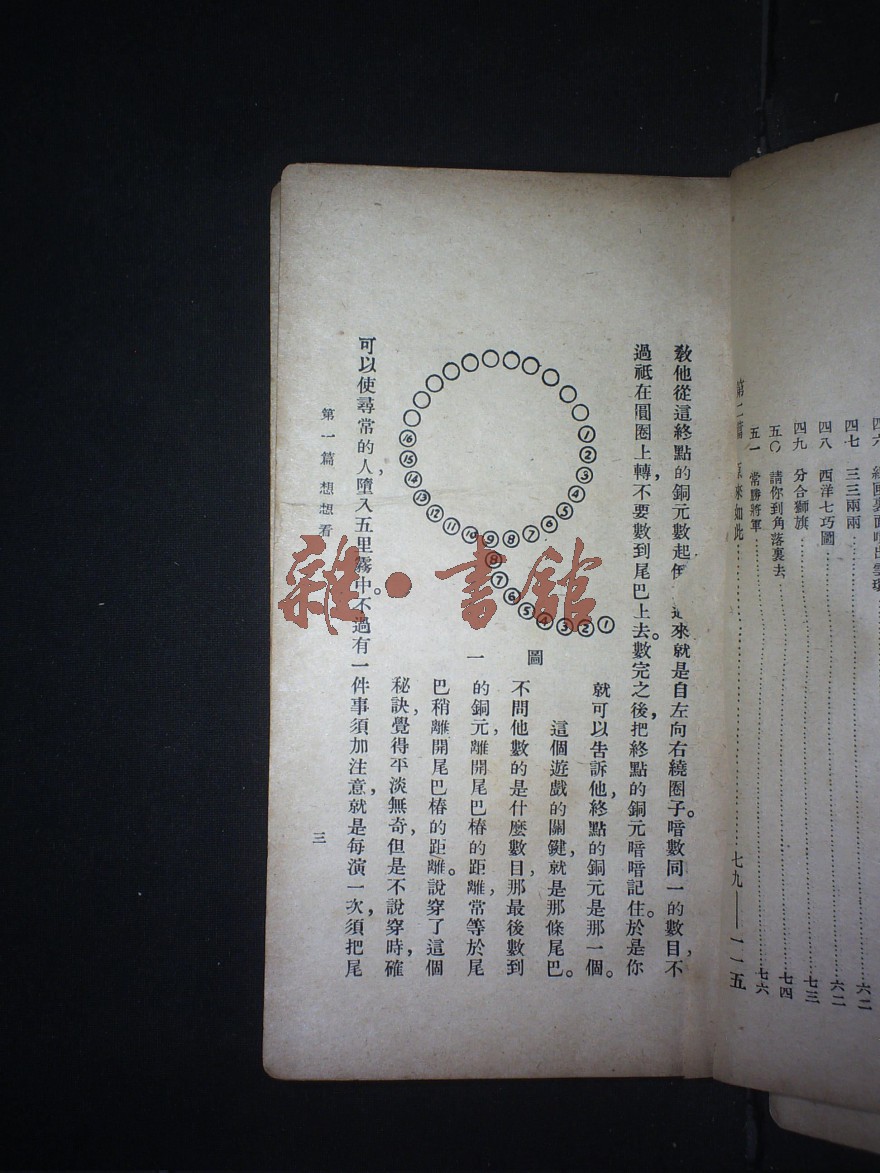 四七 三三兩兩……六二
四八 西洋七巧圖……六二
四九 分合獅旗……七三
五〇 請你到角落裏去……七四
五一 常勝將軍……七六
第二篇 原來如此……七九——一一五
教他從這終點的銅元數起 來就是自左向右繞圈子。暗數同一的數目，不
過祗在圓圈上轉，不要數到尾巴上去。數完之後，把終點的銅元暗暗記住。於是你
就可以告訴他，終點的銅元是那一個。
這個遊戲的關鍵，就是那條尾巴。
不問他數的是什麼數目，那最後數到
的銅元，離開尾巴樁的距離，常等於尾
巴稍離開尾巴樁的距離。說穿了這個
秘訣，覺得平淡無奇，但是不說穿時，確
① ② ③ ④ ⑤ ⑥ ⑦ ⑧ ⑨ ⑩ ⑪ ⑫ ⑬ ⑭ ⑮ ⑯
⑧ ⑦ ⑥ ⑤ ④ ③ ② ①
圖一
可以使尋常的人，墮入五里霧中。不過有一件事須加注意，就是每演一次，須把尾
第一篇 想想看
三
雜·書館